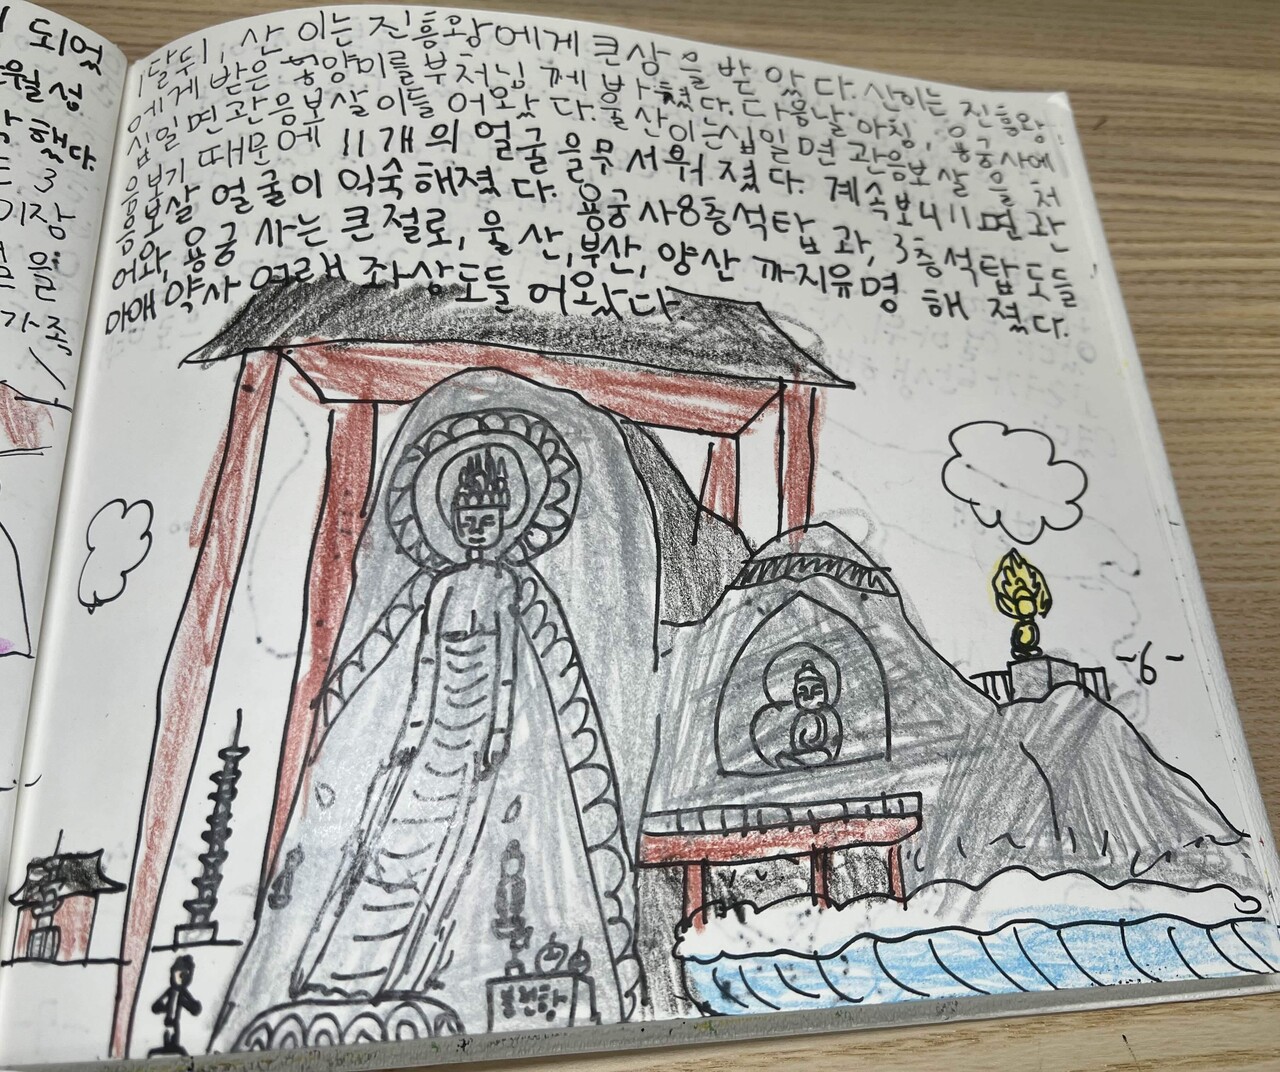 되었
월성
했다.
3
이장
을
가족,
1달뒤, 산이는 진흥왕에게 큰상을 받았다. 산이는 진흥왕
에게 받은 공양미를 부처님께 바쳤다. 다음날 아침, 용궁사에
십일면관음보살이들어왔다. 울산이는십일면 관음보살을 처
음보기 때문에 11개의 얼굴을무서워졌다. 계속보니11면관
음보살 얼굴이 익숙해졌다. 용궁사8층석탑과, 3층석탑도들
어와, 용궁사는 큰절로, 울산,부산, 양산 까지유명해졌다.
마애약사여래좌상도들어왔다.
-6-